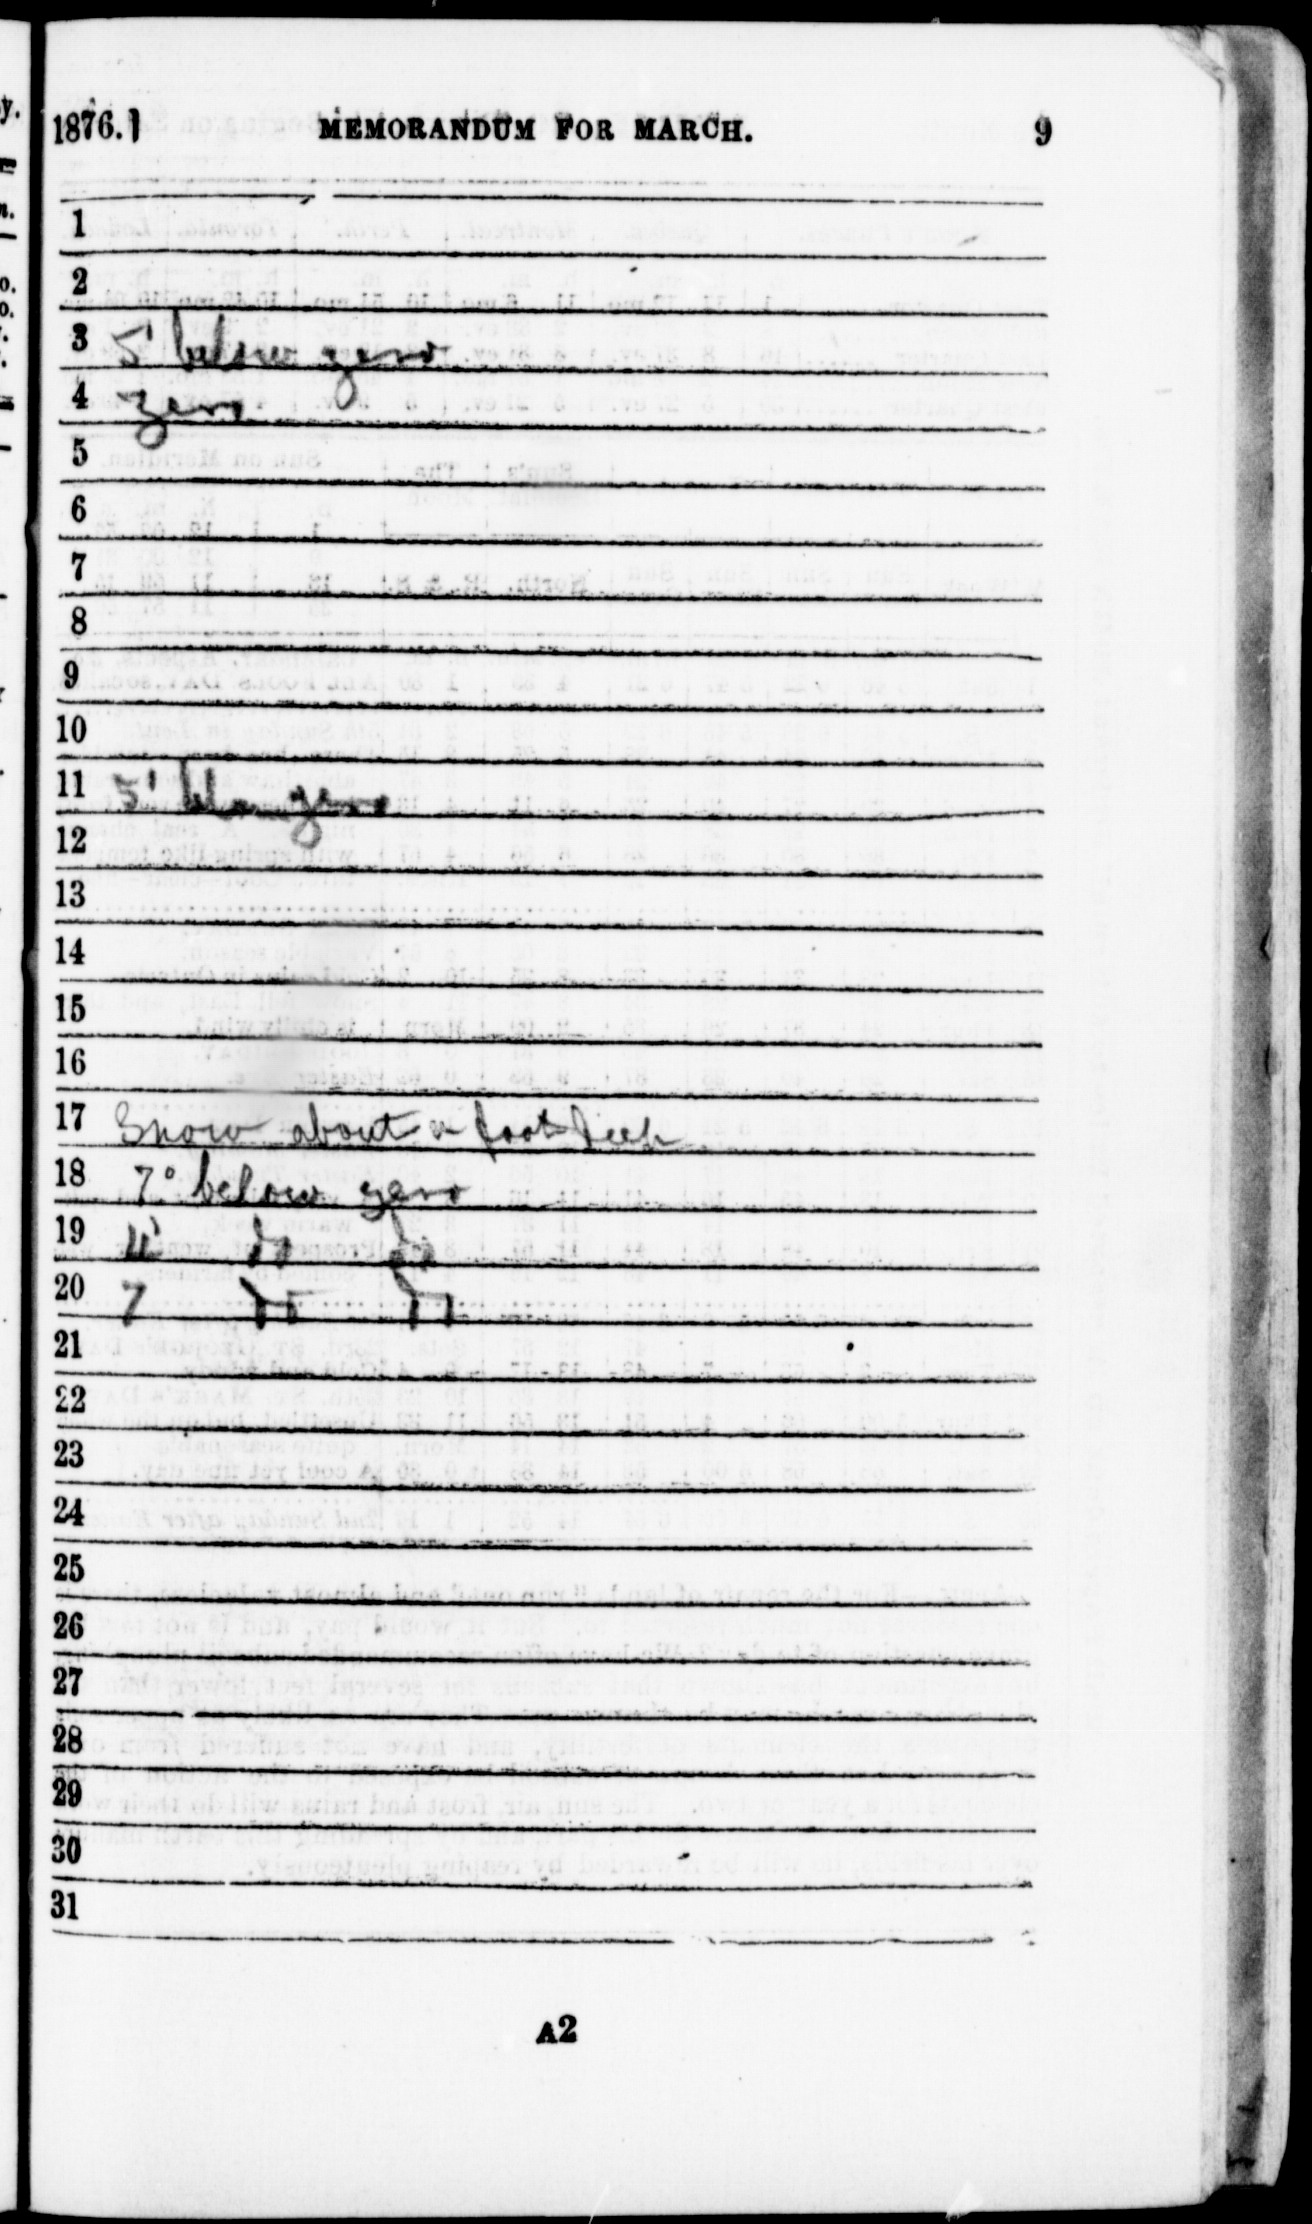 1876.] MEMORANDUM FOR MARCH. 9
1
2
3 5° below zero
4 zero
5
6
7
8
9
10
11 5° blow zero
12
13
14
15
16
17 Snow about a foot deep
18 7° below zero
19 11° do do
20 7 do do
21
22
23
24
25
26
27
28
29
30
31
A2